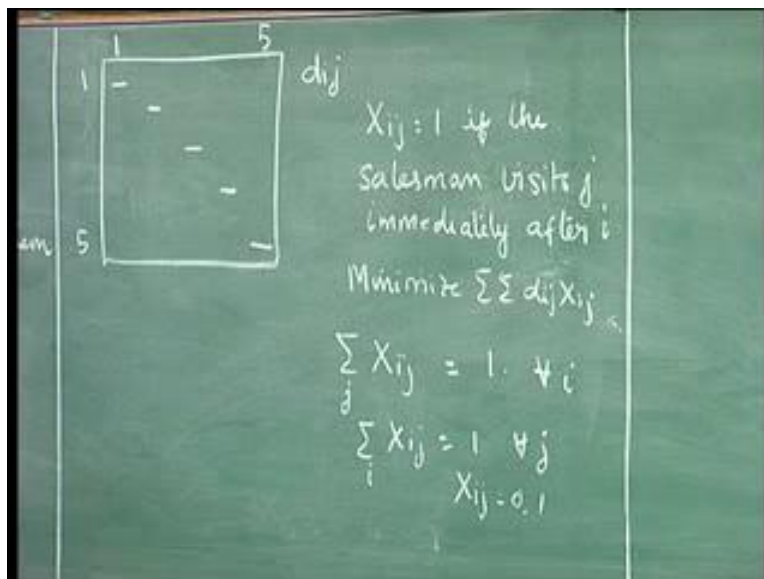 1 5
1
dij
Xij = 1 if the
Salesman visits j
immediately after i
em
5
Minimize Σ Σ dij Xij
Σ Xij = 1. ∀ i
j
Σ Xij = 1 ∀ j
i
Xij = 0, 1